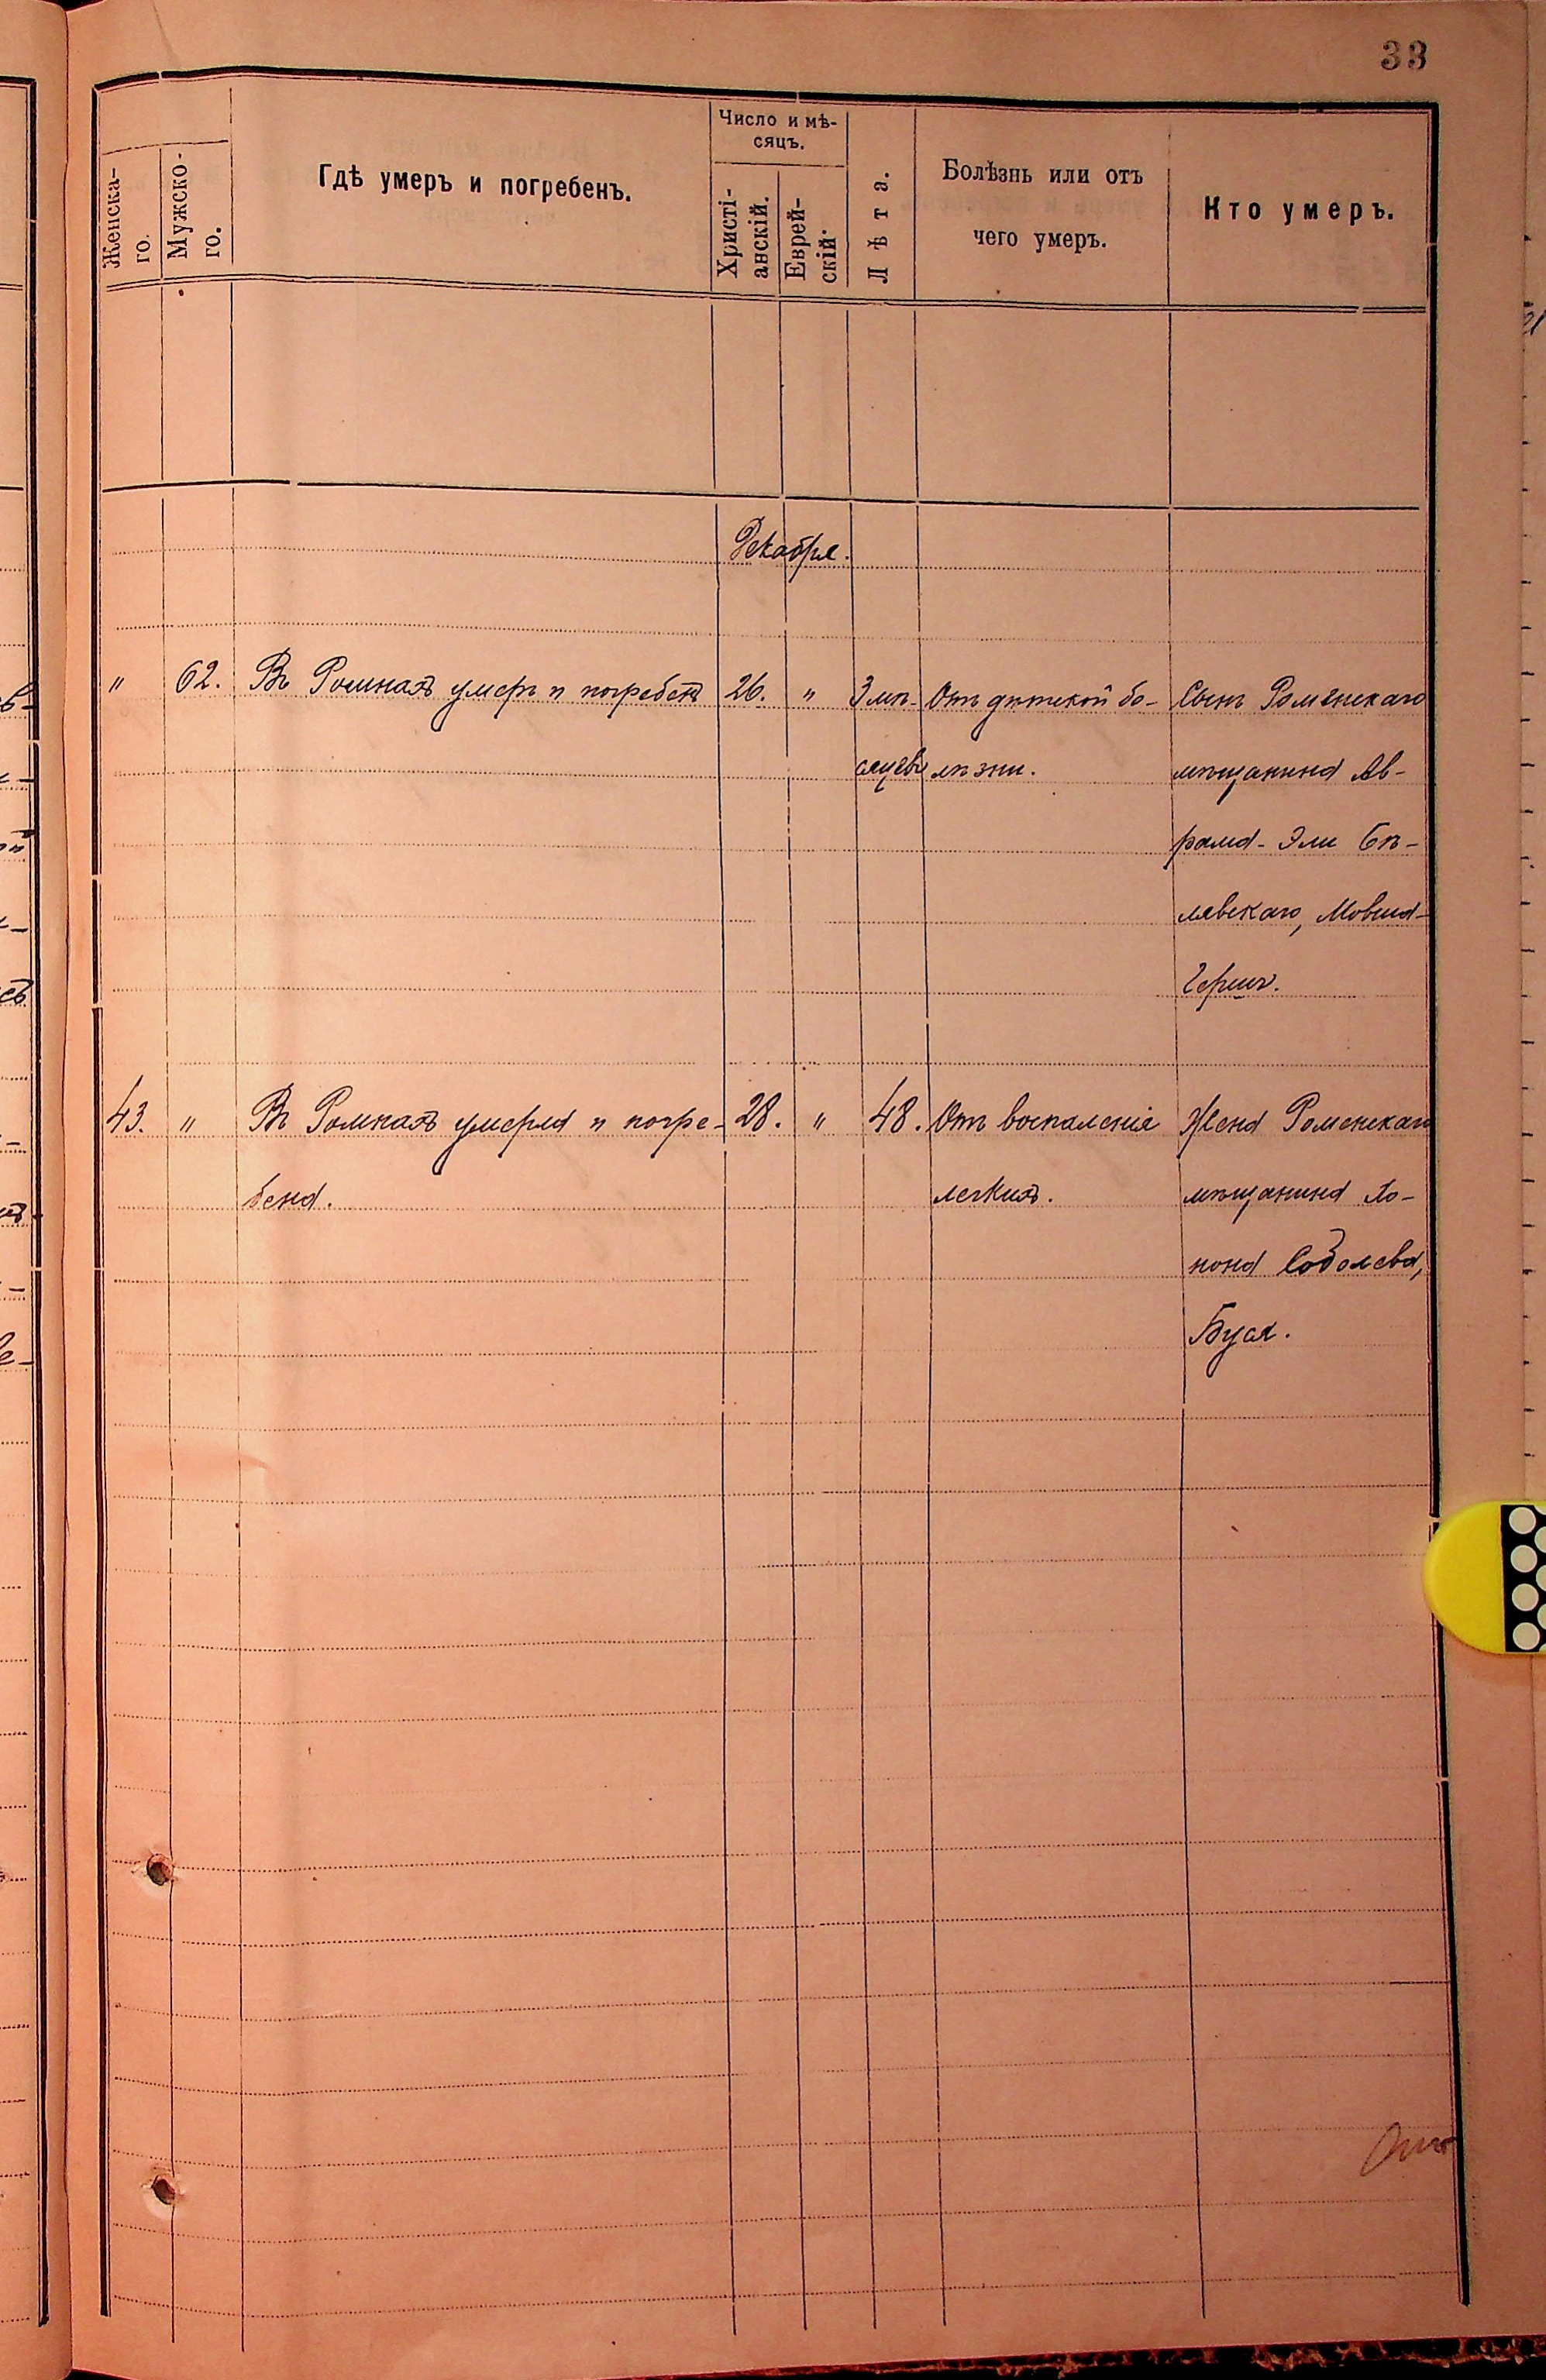 33
Женска-
го.
Мужско-
го.
Гдѣ умеръ и погребенъ.
Число и мѣ-
сяцъ.
Христі-
анскій.
Еврей-
скій.
Лѣта.
Болѣзнь или отъ
чего умеръ.
Кто умеръ.
Декабря.
" 62. Въ Ромнахъ умеръ и погребенъ 26. " 3 мѣ- Отъ дѣтской бо- Сынъ Роменскаго
сяцевъ лѣзни. мѣщанина Ав-
рама-Эли Бѣ-
лявскаго, Мовша-
Гершъ.
43. " Въ Ромнахъ умерла и погре- 28. " 48. Отъ воспаленія Жена Роменскаго
бена. легкихъ. мѣщанина
Соболева,
Буся.